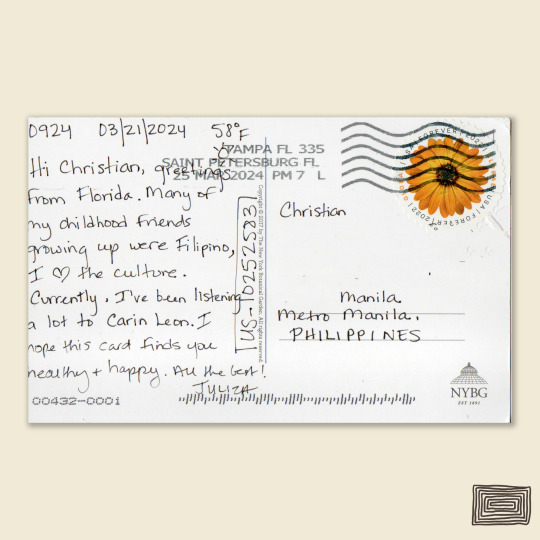 0924 03/21/2024 58°F
Hi Christian, greetings
from Florida. Many of
my childhood friends
growing up were Filipino,
I ♡ the culture.
Currently, I've been listening
a lot to Carin Leon. I
hope this card finds you
healthy + happy. All the best!
JULIZA
00432-0001
TAMPA FL 335
SAINT PETERSBURG FL
25 MAR 2024 PM 7 L
US-10252583
Copyright © 2017 by The New York Botanical Garden. All rights reserved.
Christian
Manila
Metro Manila.
PHILIPPINES
NYBG
EST 1891